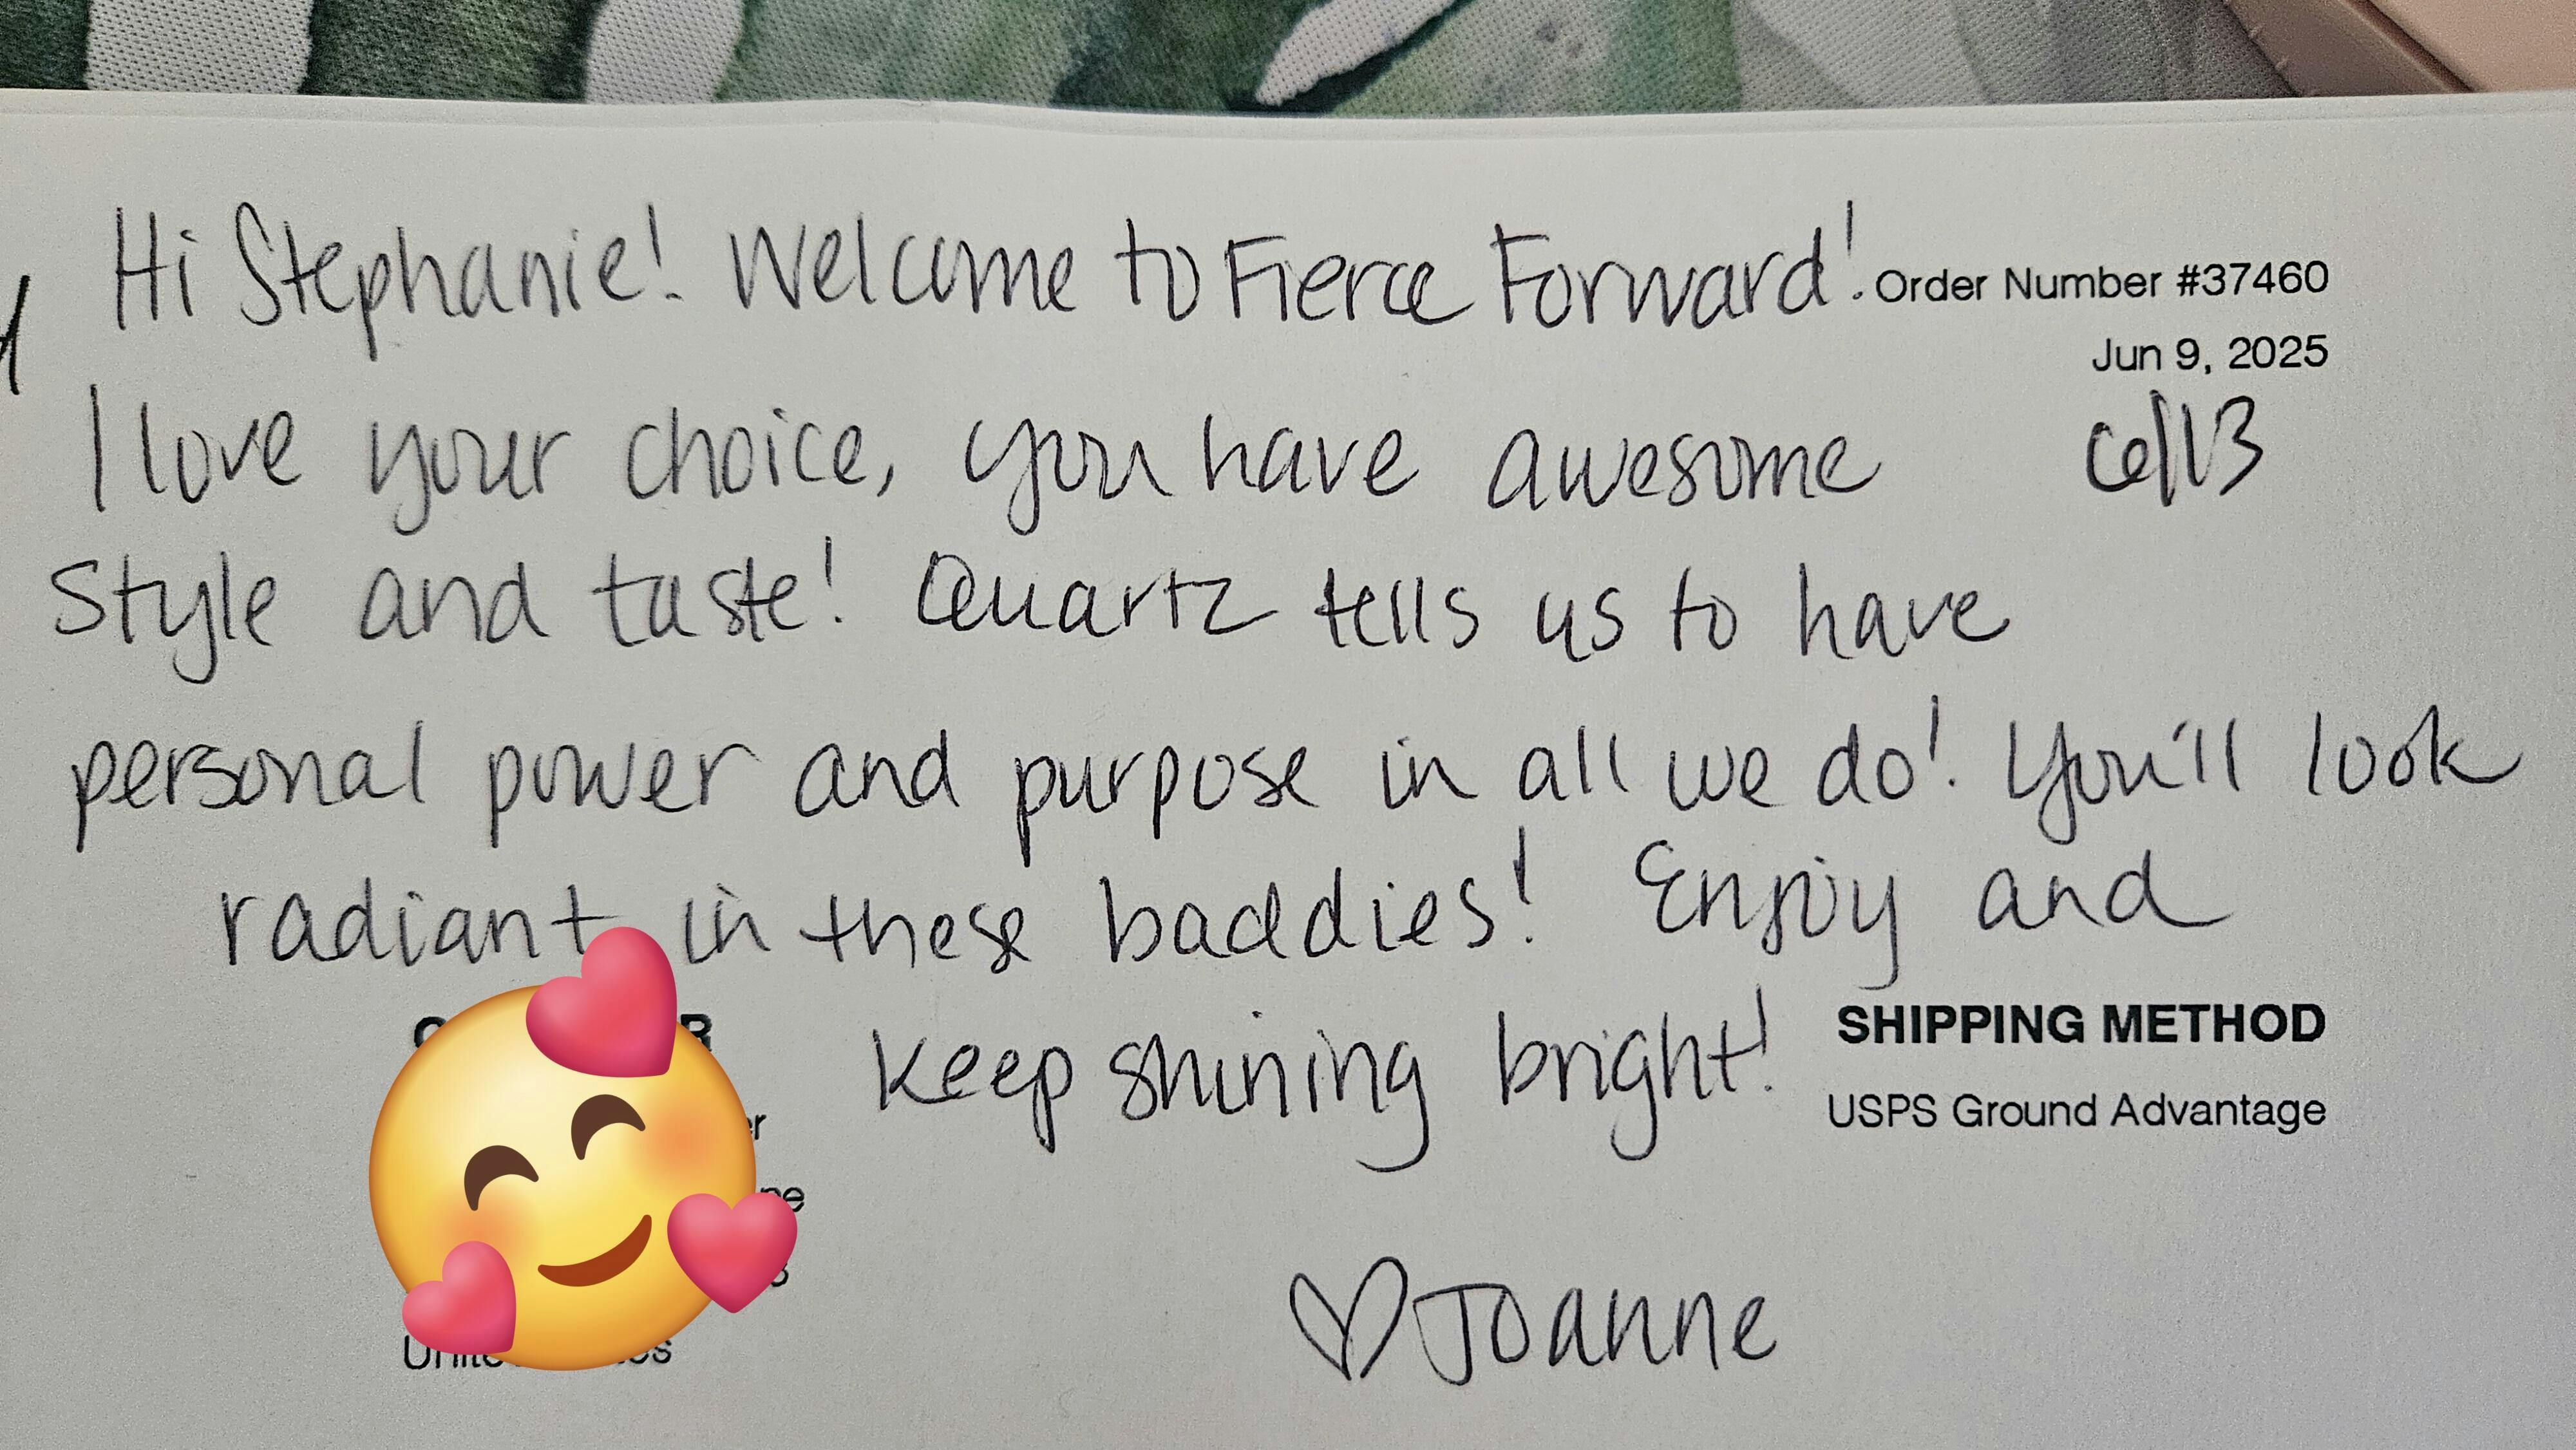 Hi Stephanie! Welcome to Fierce Forward!
Order Number #37460
Jun 9, 2025
I love your choice, you have awesome
style and taste! Quartz tells us to have
personal power and purpose in all we do! You'll look
radiant in these baddies! Enjoy and
keep shining bright!
SHIPPING METHOD
USPS Ground Advantage
♡ Joanne